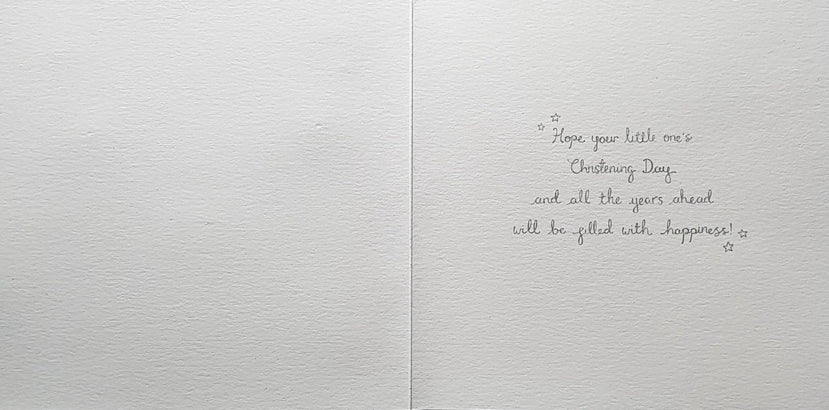 Hope your little one's
Christening Day
and all the years ahead
will be filled with happiness!